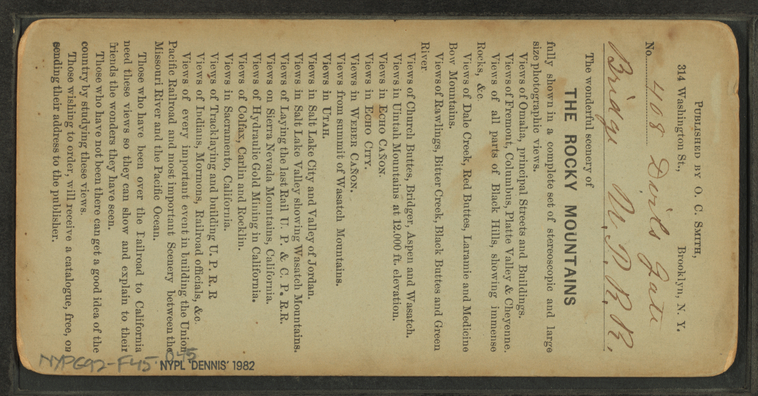 PUBLISHED BY O. C. SMITH,
314 Washington St., Brooklyn, N. Y.
No. 408 Divils Gate
Bridge U.P.R.R.
The wonderful scenery of
THE ROCKY MOUNTAINS
fully shown in a complete set of stereoscopic and large
size photographic views.
Views of Omaha, principal Streets and Buildings.
Views of Fremont, Columbus, Platte Valley & Cheyenne.
Views of all parts of Black Hills, showing immense
Rocks, &c.
Views of Dale Creek, Red Buttes, Laramie and Medicine
Bow Mountains.
Views of Rawlings, Bitter Creek, Black Buttes and Green
River
Views of Church Buttes, Bridger, Aspen and Wasatch.
Views in Uintah Mountains at 12,000 ft. elevation.
Views in ECHO CAÑON.
Views in ECHO CITY.
Views in WEBER CAÑON.
Views from summit of Wasatch Mountains.
Views in UTAH.
Views in Salt Lake City and Valley of Jordan.
Views in Salt Lake Valley showing Wasatch Mountains.
Views of Laying the last Rail U. P. & C. P. R.R.
Views on Sierra Nevada Mountains, California.
Views of Hydraulic Gold Mining in California.
Views of Colfax, Carlin and Rocklin.
Views in Sacramento, California.
Views of Tracklaying and building U. P. R.R
Views of Indians, Mormons, Railroad officials, &c.
Views of every important event in building the Union
Pacific Railroad and most important Scenery between the
Missouri River and the Pacific Ocean.
Those who have been over the Railroad to California
need these views so they can show and explain to their
friends the wonders they have seen.
Those who have not been there can get a good idea of the
country by studying these views.
Those wishing to order, will receive a catalogue, free, on
sending their address to the publisher.
NYPG92-F45
NYPL 'DENNIS' 1982